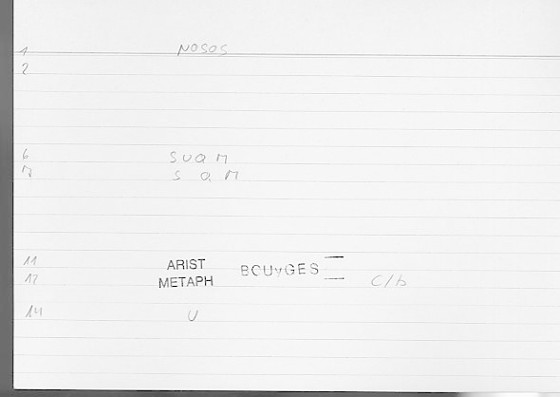 1 NOSOS
2
6 SUQM
7 S Q M
11 ARIST BOUYGES
12 METAPH C/b
14 U